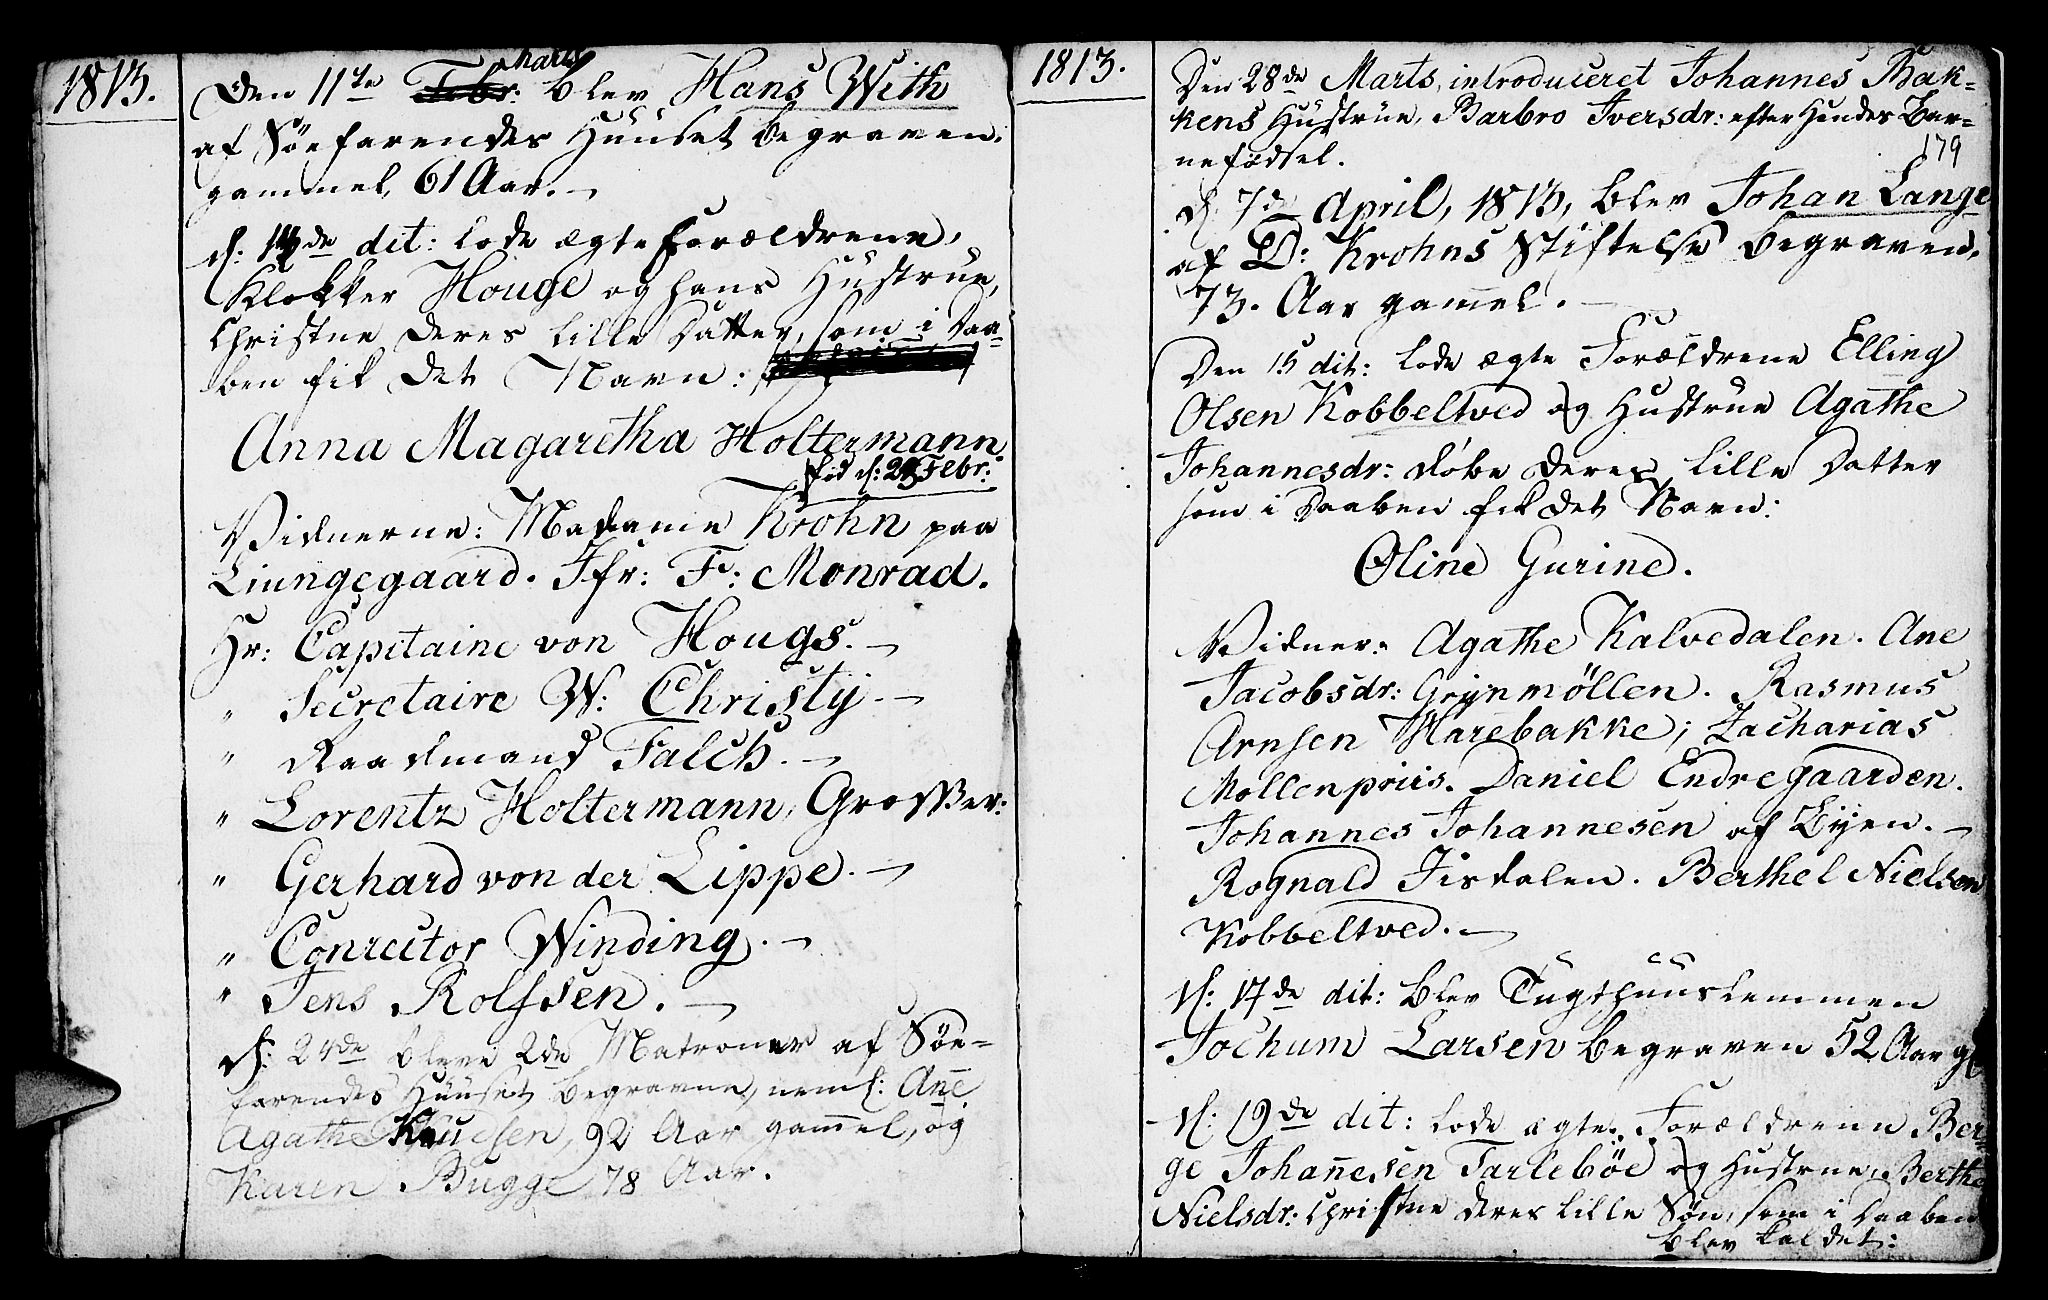 1813.
Marts
Den 11te Febr: blev Hans With
af Søefarendes Huuset begraven.
gammel, 61 Aar.
d: 14de dit: lode ægte Forældrene,
Klokker Houge og hans Hustrue,
Christne deres lille Datter, som i Daa-
ben fik det Navn:
Anna Magaretha Holtermann.
fød d: 25 Febr:
Vidnerne: Madame Krohn paa
Liungegaard. Jfr: F: Monrad.
Hr: Capitaine von Hougs.
" Secretaire W: Christij
" Raadmand Falch.
" Lorentz Holtermann, Grosser:
" Gerhard von der Lippe.
" Conrector Winding.
" Jens Rolfsen.
d: 24de bleve 2de Matroner af Søe-
farendes Huuset begravne, neml: Ane
Agathe Knudsen, 92 Aar gamel, og
Karen Bugge 78 Aar.
1813.
Den 28de Marts, introduceret Johannes Bak-
kens Hustrue, Barbro Iversdr: efter Hendes Bar-
nefødsel.
179
d. 7de April, 1813, blev Johan Lange
af D: Krohns Stiftelse begraven,
73. Aar gamel.
Den 15 dit: lode ægte Forældrene Elling
Olsen Kobbeltved og Hustrue Agathe
Johannesdr: døbe deres lille Datter
som i Daaben fik det Navn:
Oline Gurine.
Vidner: Agathe Kalvedalen. Ane
Jacobsdr: Grijnmöllen. Rasmus
Arnsen Marebakke; Zacharias
Mollenpriis. Daniel Endregaarden.
Johannes Johannesen af Bijen.
Rognald Jisdalen. Berthel Nielsen
Kobbeltved.
d: 17de dit: blev Tugthuuslemmen
Jochum Larsen begraven 52 Aar gl
d: 19de dit: lode ægte Forældrene Ber-
ge Johanesen Tarlebøe og Hustrue, Berthe
Nielsdr: Christne deres lille Søn, som i Daaben
blev kaldet: